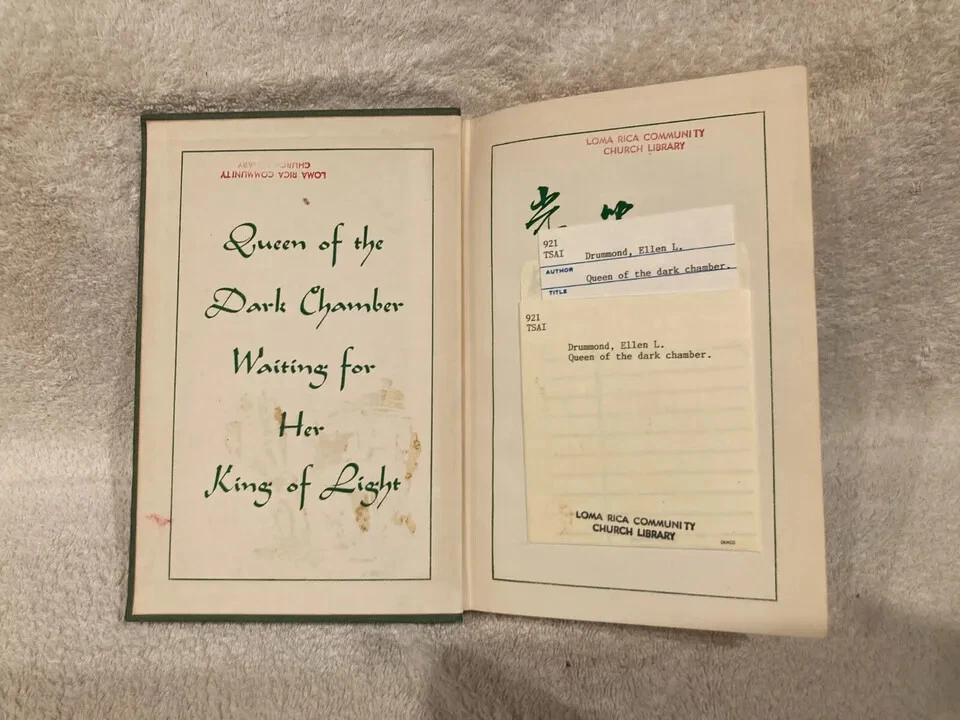 LOMA RICA COMMUNITY
CHURCH LIBRARY
Queen of the
Dark Chamber
Waiting for
Her
King of Light
LOMA RICA COMMUNITY
CHURCH LIBRARY
921
TSAI
Drummond, Ellen L.
AUTHOR
Queen of the dark chamber.
TITLE
921
TSAI
Drummond, Ellen L.
Queen of the dark chamber.
LOMA RICA COMMUNITY
CHURCH LIBRARY